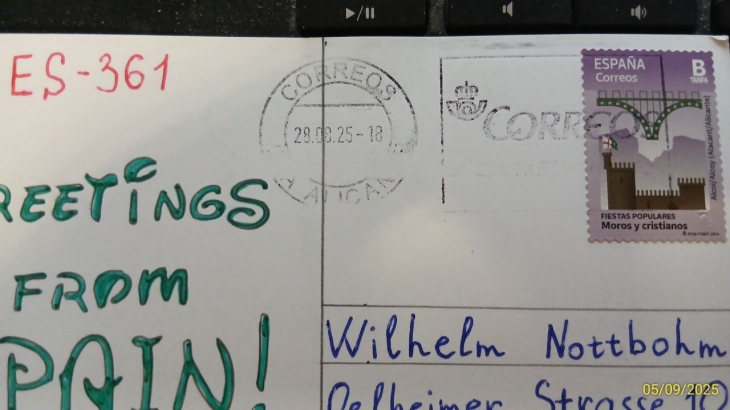 ES-361
CORREOS
28.08.25-18
CORREOS
ESPAÑA
Correos
B
TARIFA
Alcoi/Alcoy (Alacant/Alicante)
FIESTAS POPULARES
Moros y cristianos
REETINGS
FROM
PAIN!
Wilhelm Nottbohm
Oelheimer Strasse 10
05/09/2025